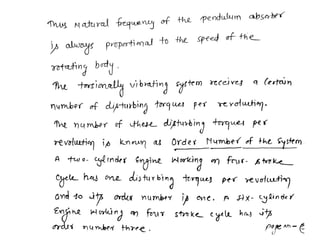 Thus natural frequency of the pendulum absorber
is always proportional to the speed of the
rotating body.
The torsionally vibrating system receives a certain
number of disturbing torques per revolution.
The number of these disturbing torques per
revolution is known as Order Number of the System.
A two. cylinder Engine working on four. stroke
cycle has one disturbing torques per revolution
and so its order number is one. A six- cylinder
Engine working on four stroke cycle has its
order number three.